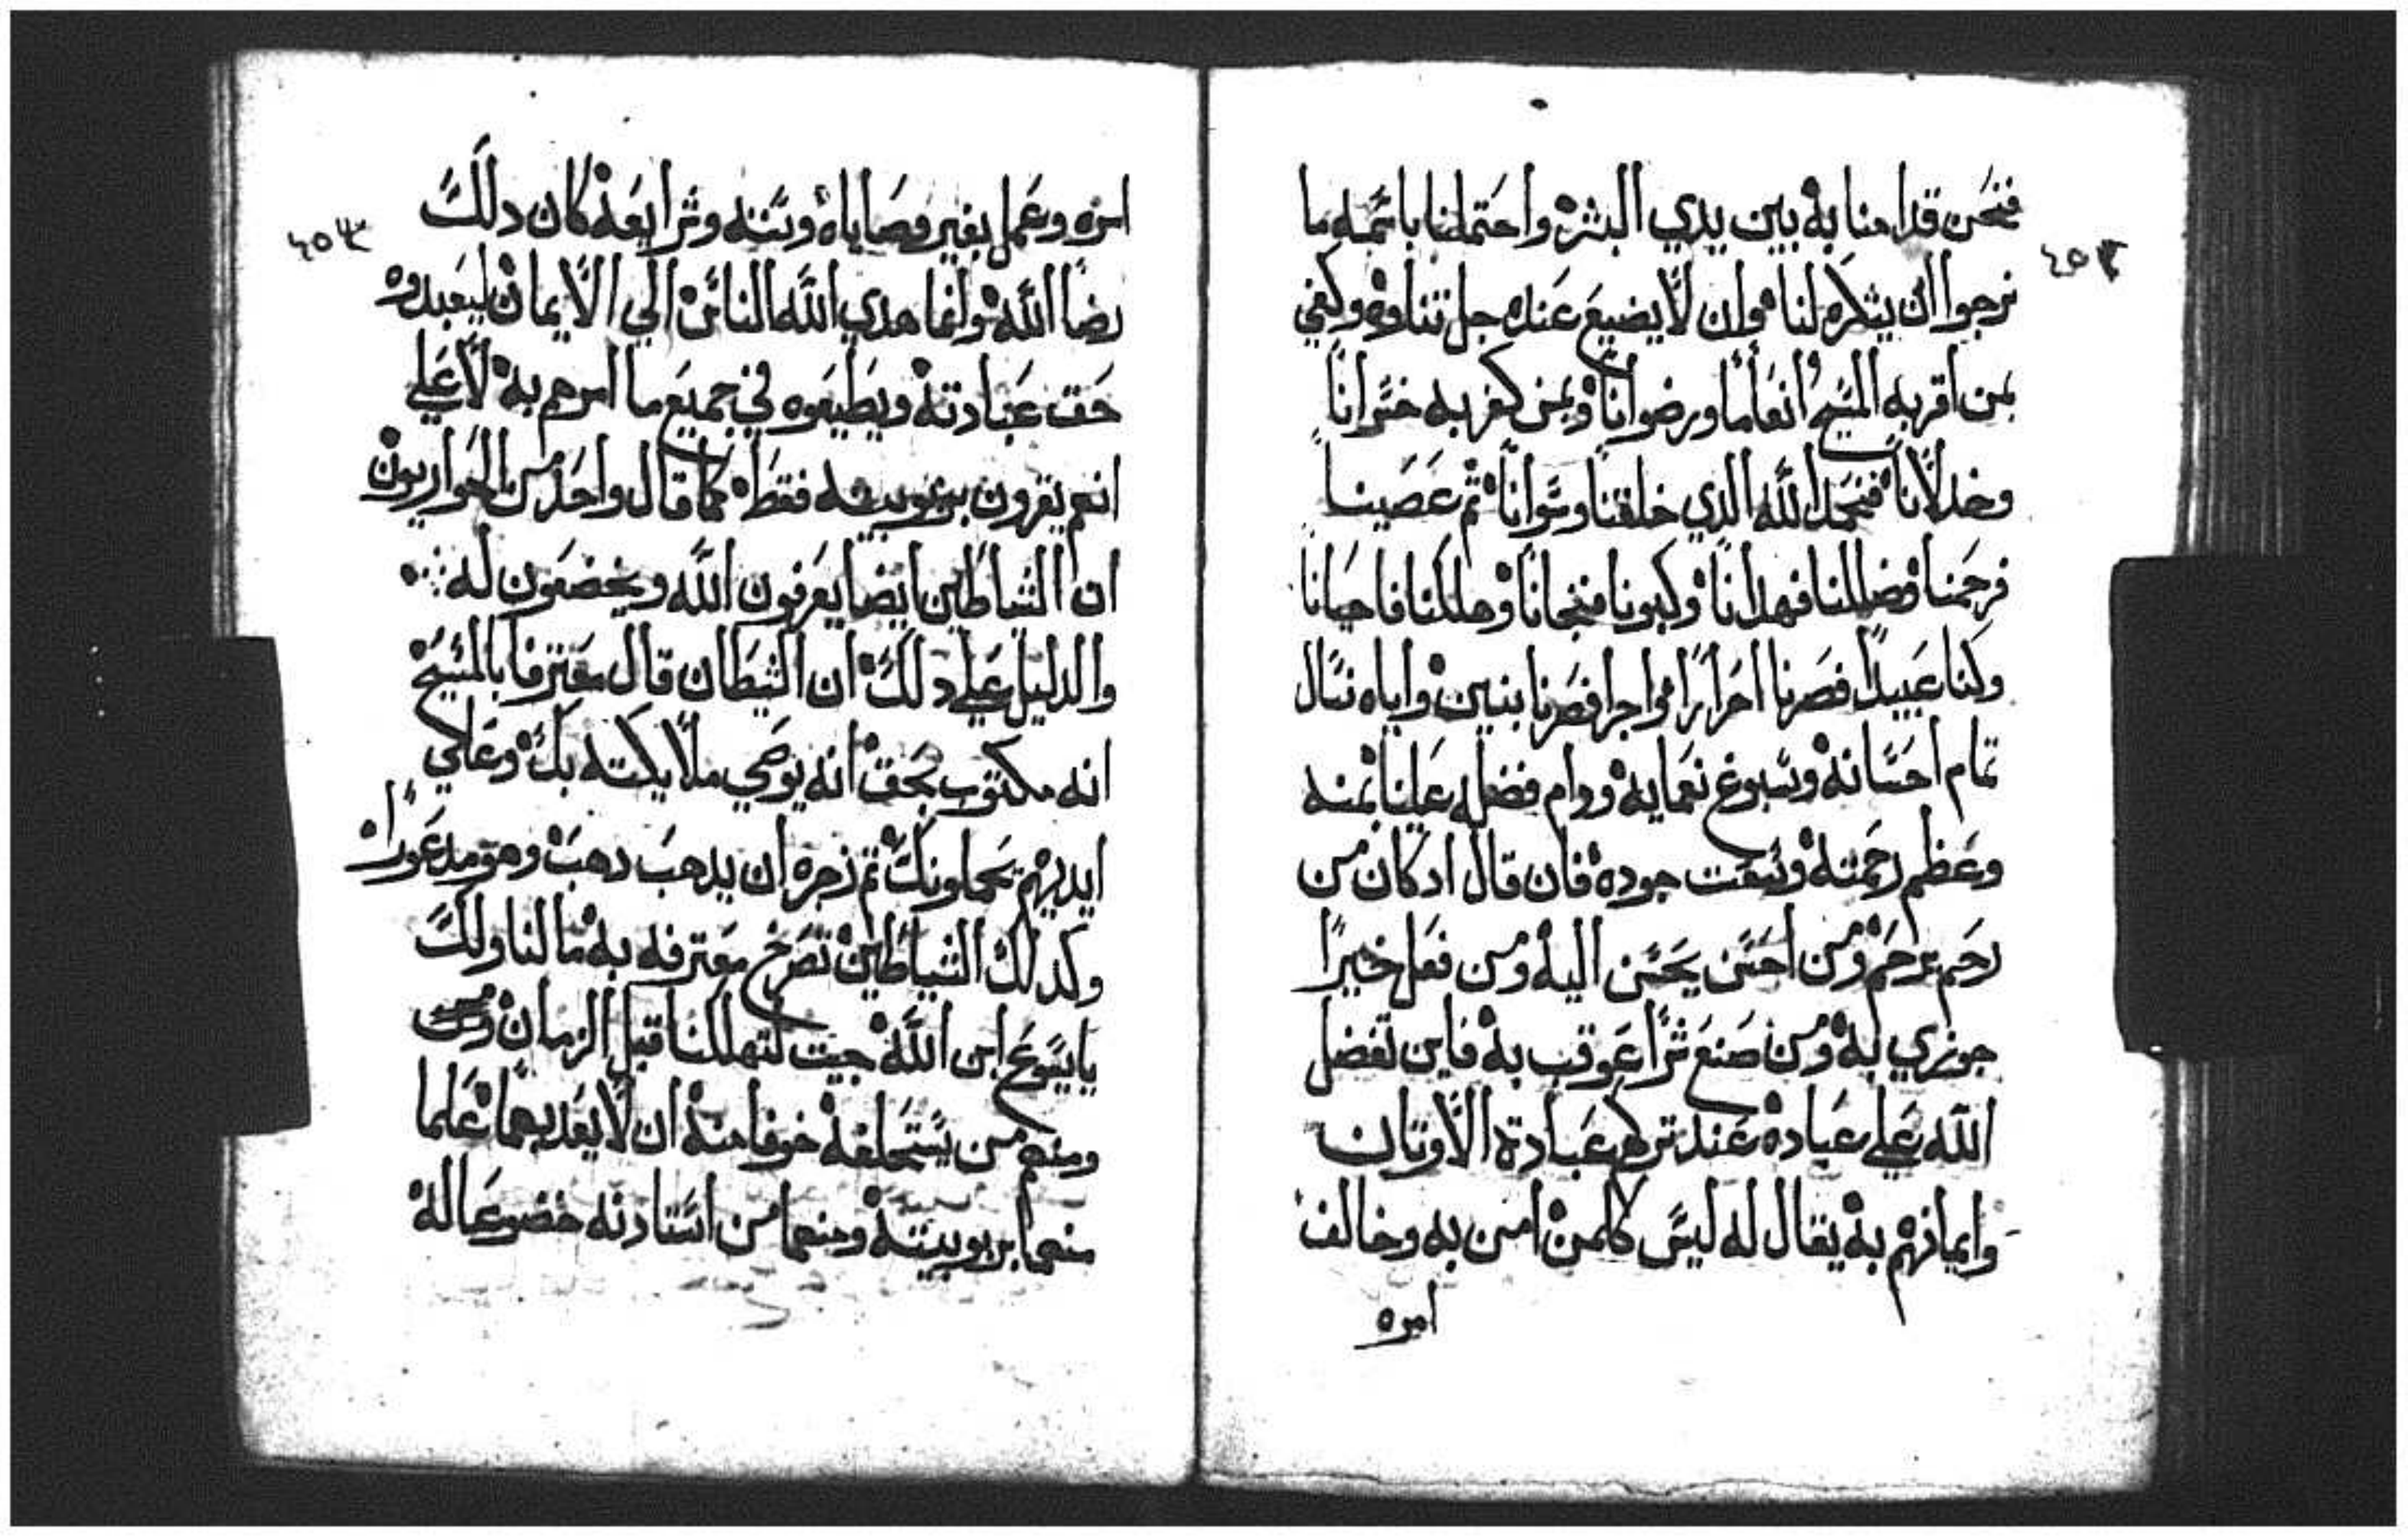 فنحن قد امنا به بين يدي البشر واحتملنا باسمه ما
نرجوا ان يشكره لنا وان لا يضيع عنده جل تناوه وكفي
بمن اقر به المسيح انعاما ورضوانا وبمن كفر به خسرانا
وخدلانا فنحمد الله الدي خلقنا وسوانا ثم عصينا
فرحمنا وضللنا فهدانا وكبونا فنجانا وهلكنا فاحيانا
وكنا عبيدا فصرنا احرارا واجرا فصرنا بنين واياه نسال
تمام احسانه وسبوغ نعمايه ودوام فضله علينا بمنه
وعظم رحمته وسعت جوده فان قال اد كان من
رحم يرحم ومن احسن يحسن اليه ومن فعل خيرا
جوزي به ومن صنع شرا عوقب به فاين تفضل
الله علي عباده عند تركهم عبادة الاوتان
وايمانهم به يقال له ليس كلمن امن به وخالف
امره
٤٥٢
امره وعمل بغير وصاياه وسننه وشرايعه كان دلك
رضا الله وانما هدي الله الناس الي الايمان ليعبدوه
حق عبادته ويطيعوه في جميع ما امرهم به لا علي
انهم يقرون بربوبيته فقط كما قال واحد من الحواريون
ان الشياطين ايضا يعرفون الله ويخضعون له
والدليل علي دلك ان الشيطان قال معترفا بالمسيح
انه مكتوب بحق انه يوصي ملايكته بك وعلي
ايديهم يحملونك ثم زجره ان يدهب دهب وهو مدعورا
وكدلك الشياطين تصرخ معترفه به ما لنا ولك
يا يسوع ابن الله جيت لتهلكنا قبل الزمان ومن
ومنهم من يستحلفه خوفا منه ان لا يعدبهما علما
منهما بربوبيته ومنهما من استادنه خضوعا له
٤٥٣